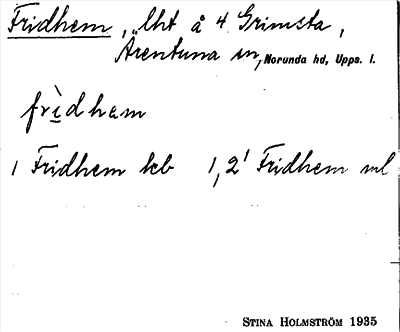 Fridhem, lht å 4 Grimsta,
Ärentuna sn, Norunda hd, Upps. l.
frìdhem
1 Fridhem kb 1,2' Fridhem ml
STINA HOLMSTRÖM 1935